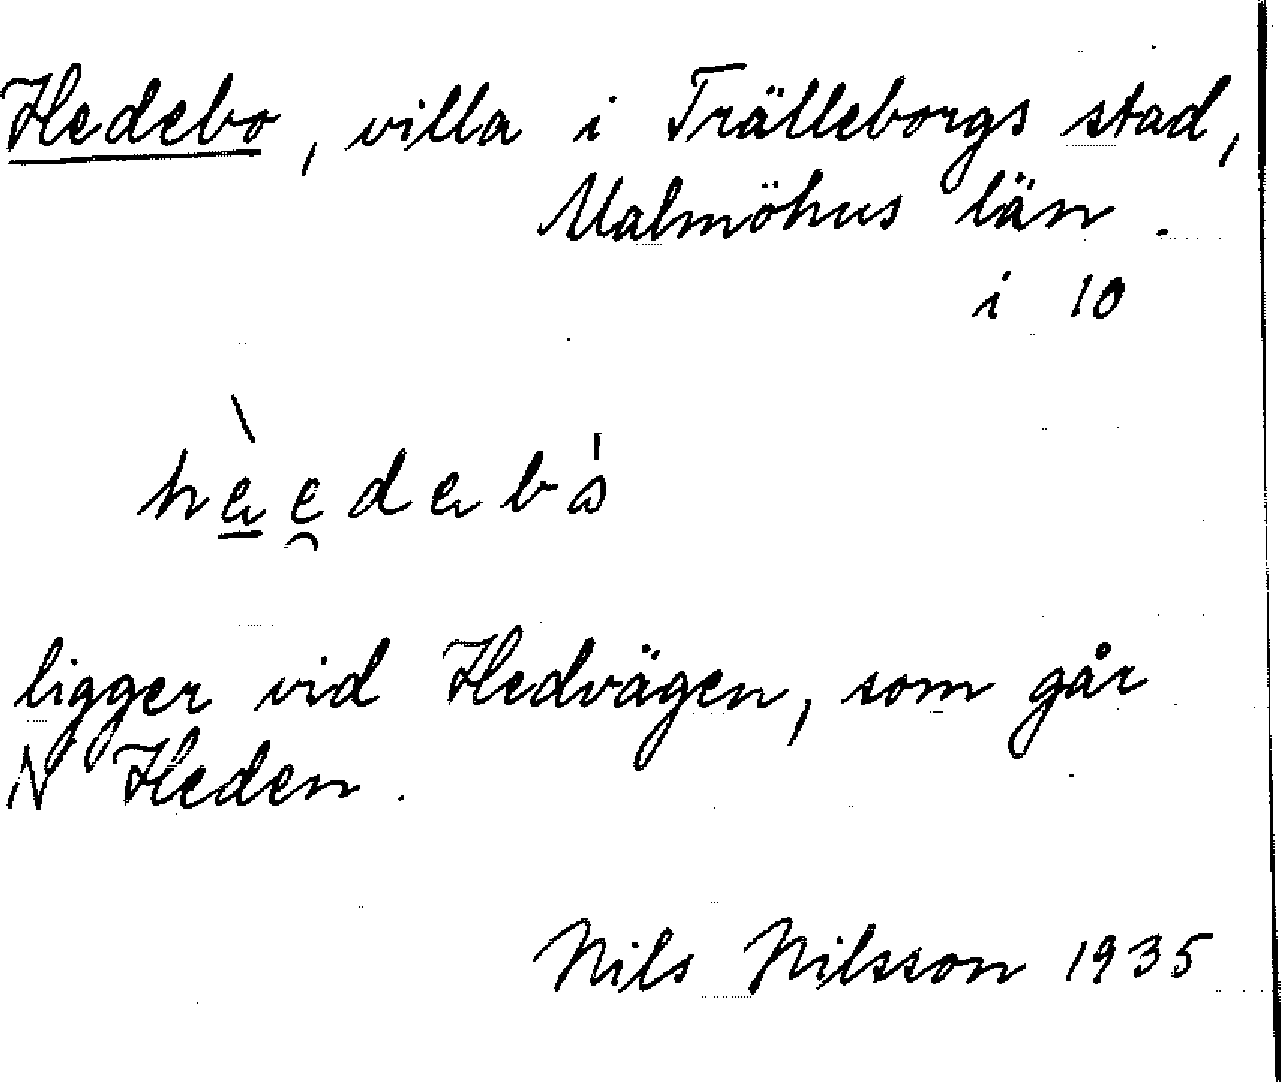 Hedebo, villa i Trälleborgs stad,
Malmöhus län.
i 10
ligger vid Hedvägen, som går
N Heden.
Nils Nilsson 1935